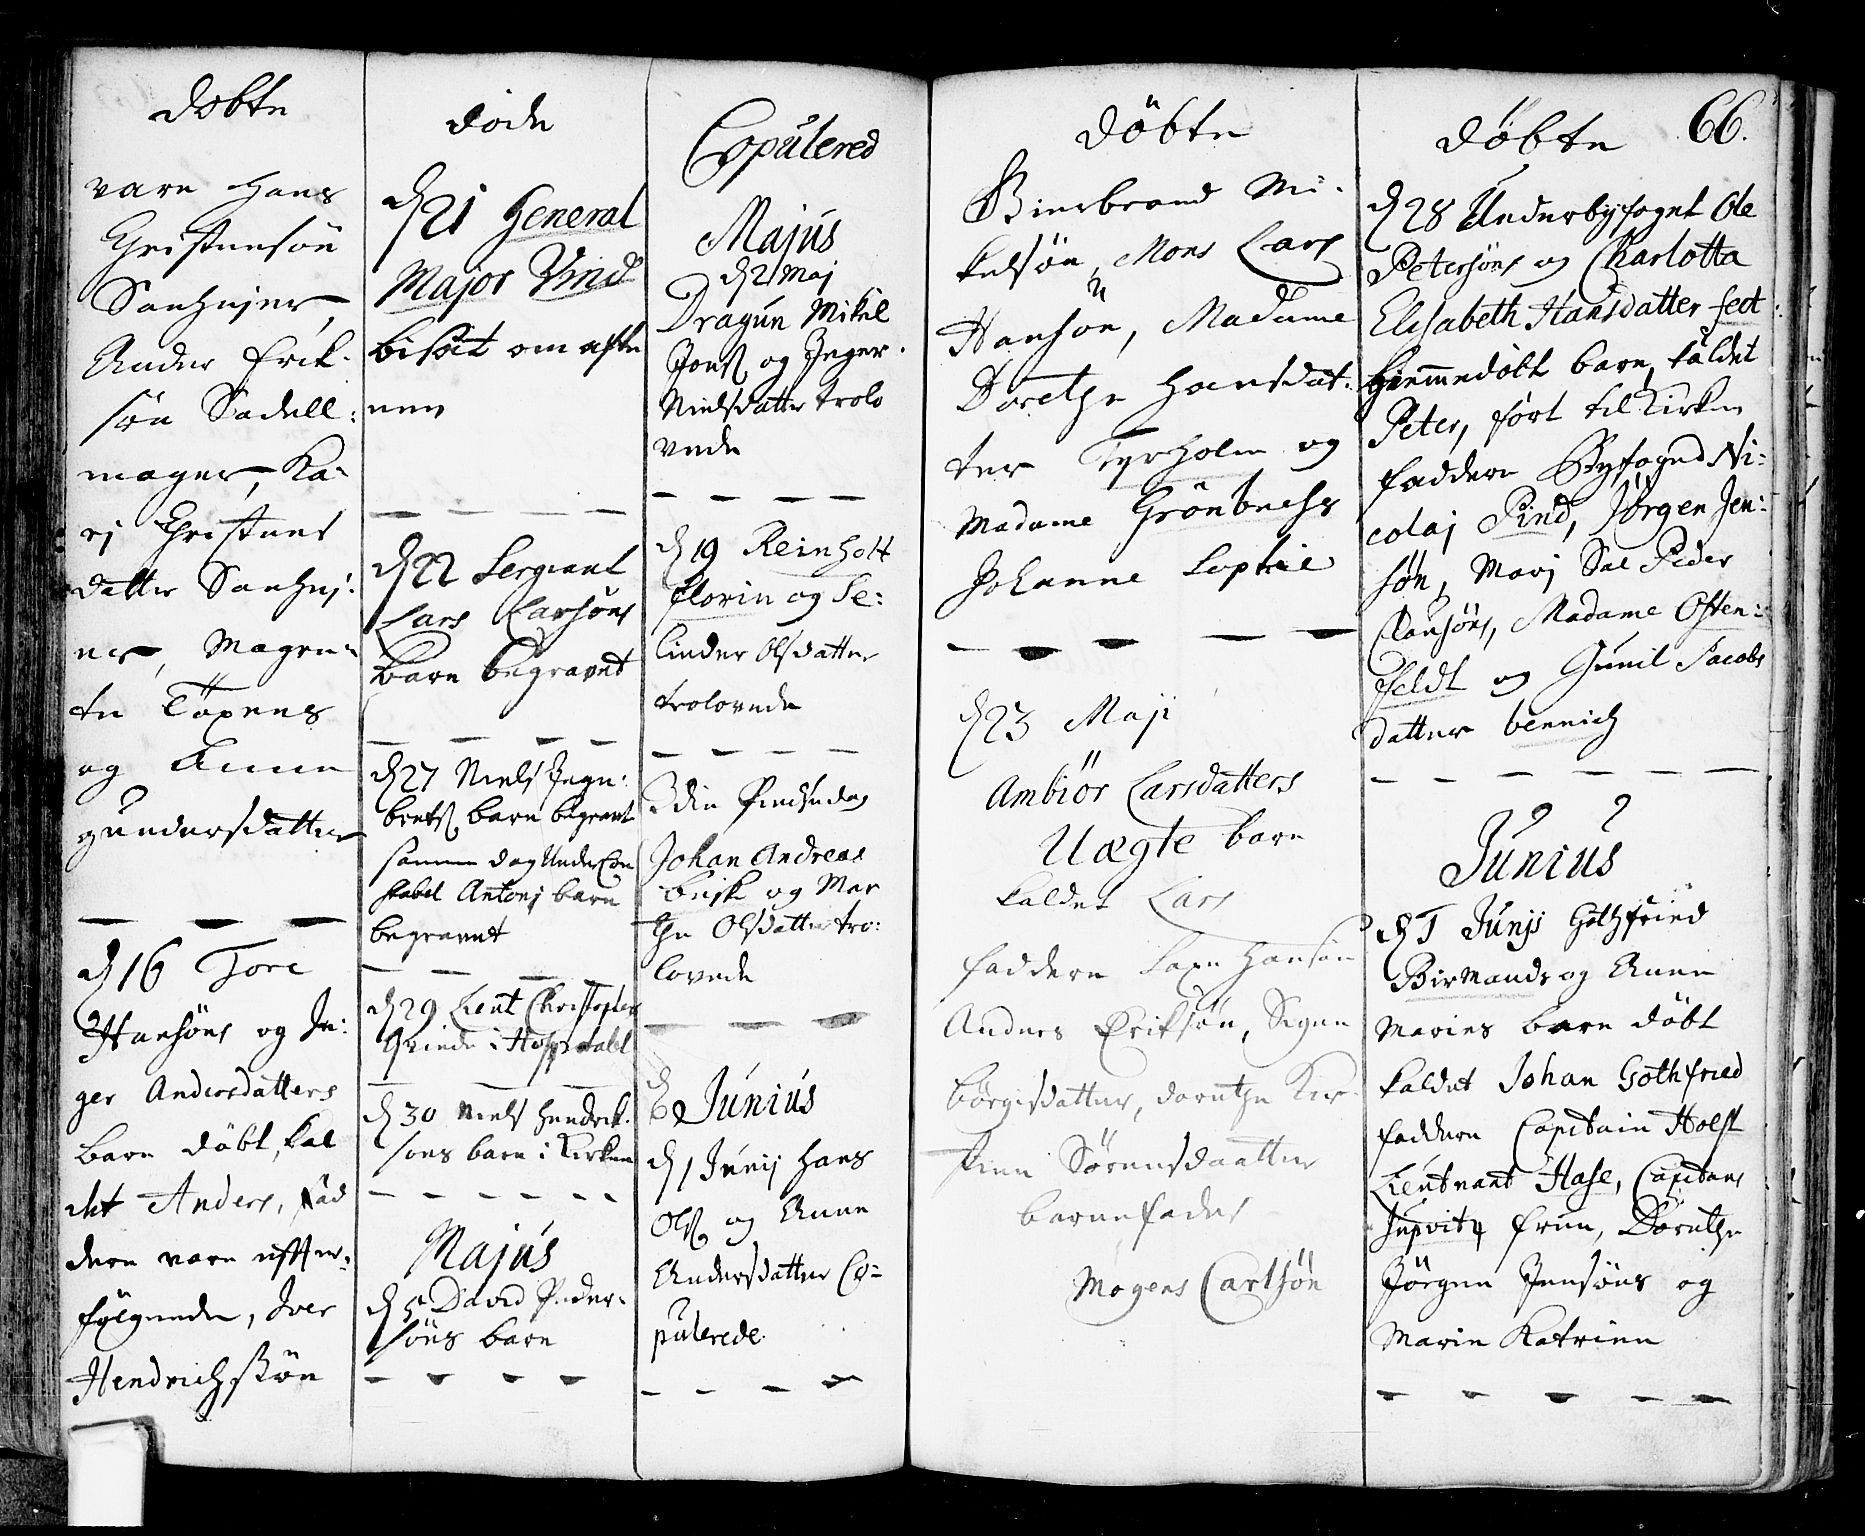 Døbte
vare Hans
Christensøn
Sanhujer,
Ander Erik-
søn Sadell:
mager, Ka-
ri Christens
datter Sanhuj:
ner, Magre-
te Töxens
og Anne
gundersdatter
d 16 Tore
Hansöns og In:
ger Andersdatters
barn döbt, kal
det Anders, fad
dere vare efter-
fölgende, Iver
Hendrichssön
döde
d 21 General
Major Vind
bisat om afte
nen
d 22 Sergiant
Lars Larsöns
barn begravet
d 27 Niels Inge:
bretß barn begravet
samme dag Under Con
stabel Antonj barn
begravet
d 29 Lieut Christopher
i Hospitalet
d 30 Niels Hendrik-
söns barn i Kirken
Majus
d 5 David Peder-
söns barn
Copulered
Majus
d 2 Maj
Dragun Mikel
Jonß og Inger
Nielsdatter trolo
vede
d 19 Reinholt
Florin og Se:
linder Olsdatter
trolovede
3die Pindsedag
Johan Andreas
og Mar
the Olsdatter tro:
lovede
Junius
d 1 Junij Hans
Olß og Anne
Andersdatter Co-
pulerede
döbte
Binebrand Mi-
kelsön, Mons Lars
Hansön, Madame
Dorethe Hansdat:
ter Tyrholm og
Madame Grönbechs
Johanne Sophie
d 23 Maji
Ambiör Larsdatters
Uægte barn
kaldet Lars
faddere Saxe Hansön
Anders Eriksön, Signe
börgisdatter, dorethe Kir-
stine Sörensdaatter
barnefader
Mogens Carlsön
döbte 66.
d 28 Underbyfoget Ole
Petersöns og Charlotta
Elisabeth Hansdatter fect
hiemmedöbt barn, kaldet
Peter, fört til Kirken
faddere Byfoged Ni-
colaj Pind, Jörgen Jen:
sön, Marj Sal Peder
Clausöns, Madame Osten:
feldt og Gunil Jacobs
datter bennich
Junius
d 1 Junij Gothfried
Birmands og Anne
Maries barn döbt
kaldet Johan Gothfried
faddere Capitain Holst
Lieutnant Hase, Capitans
frue, Dorethe
Jörgen Jensöns og
Marie Katrine